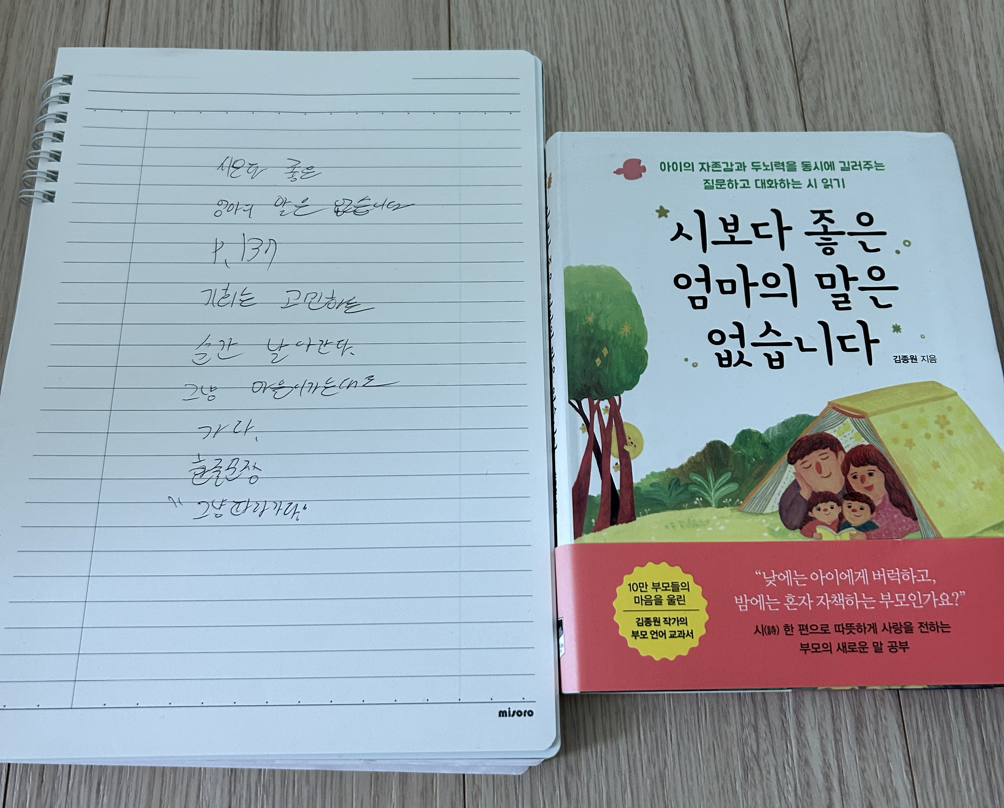 시보다 좋은
엄마의 말은 없습니다
P. 137
기회는 고민하는
순간 날아간다.
그냥 마음이가는대로
가라.
한줄문장
"그냥따라가라."
misoro
아이의 자존감과 두뇌력을 동시에 길러주는
질문하고 대화하는 시 읽기
시보다 좋은
엄마의 말은
없습니다
김종원 지음
10만 부모들의
마음을 울린
김종원 작가의
부모 언어 교과서
“낮에는 아이에게 버럭하고,
밤에는 혼자 자책하는 부모인가요?”
시(詩) 한 편으로 따뜻하게 사랑을 전하는
부모의 새로운 말 공부